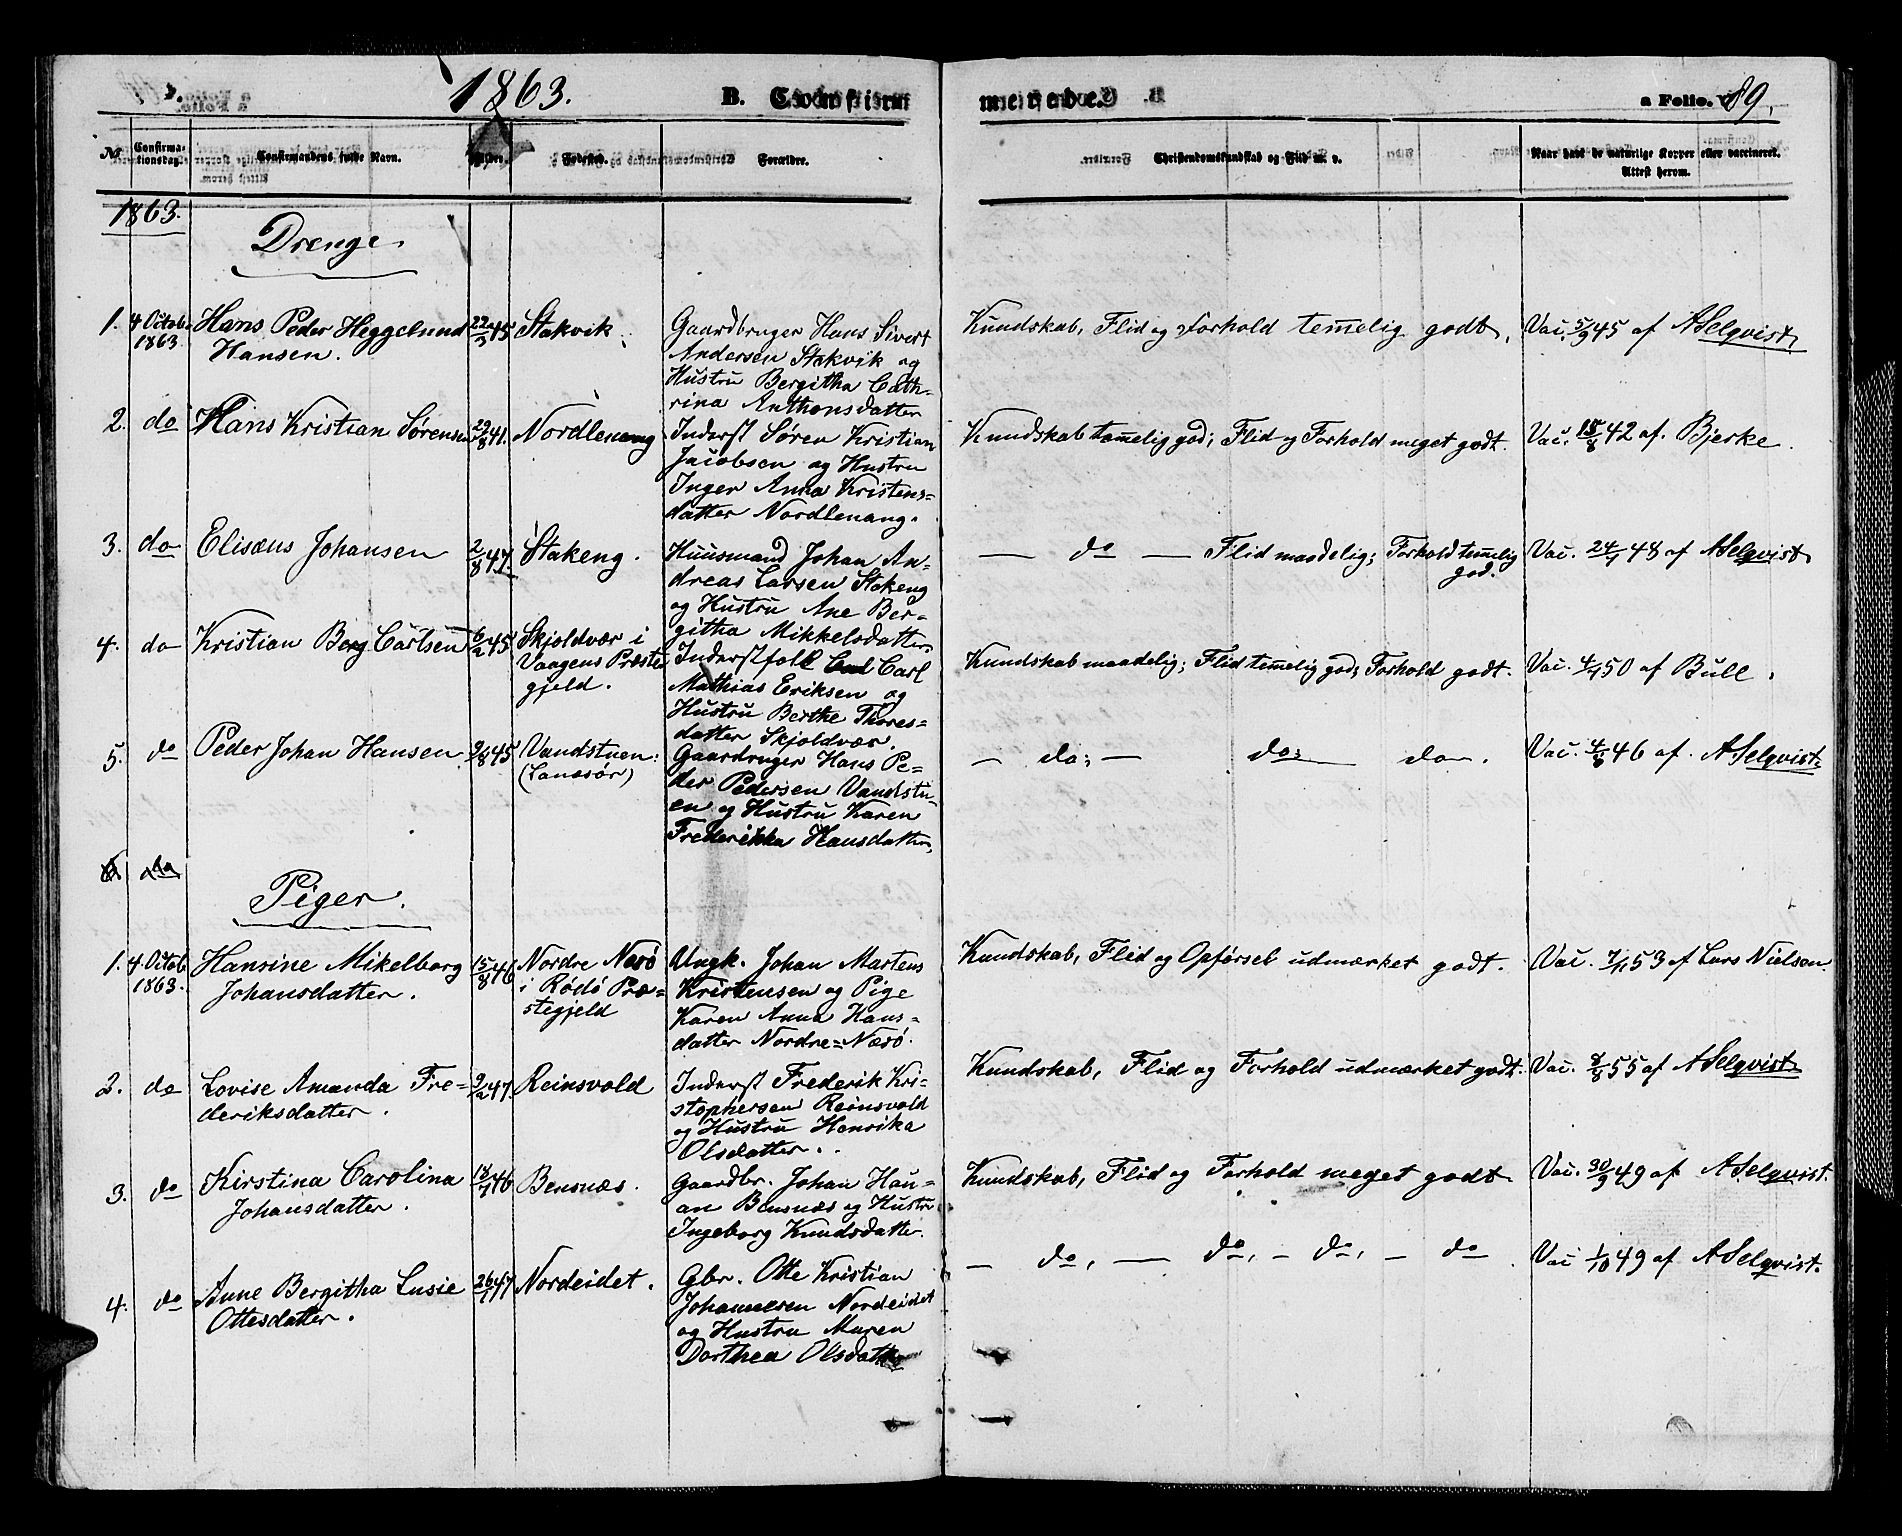 1863. B. Confirmerede. a Folio. 89.
№
Confirmationsdag.
Confirmandens fulde Navn.
Alder.
Fødested.
Forældre.
Christendomskundskab og Flid m. v.
Naar havt de naturlige Kopper eller vaccineret. Attest herom.
1863.
Drenge.
1. 4 Octob. 1863. Hans Peder Heggelund
Hansen.
45 Stakvik.
Gaardbruger Hans Sivert
Andersen Stakvik og
Hustru Bergitha Cath-
rina Anthonsdatter
Kundskab, Flid og Forhold temelig godt. Vac. 5/9 45 af ASelqvist.
2. do Hans Kristian Sørensen 29/8 41. Nordlenang
Inderst Søren Kristian
Jacobsen og Hustru
Inger Anna Kristens=
datter Nordlenang.
Kundskab temelig god; Flid og Forhold meget godt. Vac. 15/8 42 af. Bjerke.
3. do Elisæus Johansen 2/8 47. Stakeng.
Huusmand Johan An-
dreas Larsen Stakeng
og Hustru Ane Ber-
githa Mikkelsdatter.
— do — Flid maadelig; Forhold temelig
god.
Vac. 24/1 48 af ASelqvist
4. do Kristian Berg Carlsen 6/2 45 Skjoldvær i
Vaagens Præste
gjeld.
Inderstfolk Carl
Mathias Eriksen og
Hustru Berthe Thores=
datter Skjoldvær.
Kundskab maadelig; Flid temelig god; Forhold godt. Vac. 50 af Bull.
5. do Peder Johan Hansen 9/8 45 Vandstuen:
Gaardruger Hans Pe-
der Pedersen Vandstu-
en og Hustru Karen
Frederikka Hansdatter.
— do; — do: do. Vac. 46 af. ASelqvist
6. do
Piger.
1. 4 Octob 1863. Hansine Mikelborg
Johansdatter.
15/8 46 Nordre Nesö
i Rödö Præ=
stegjeld
Ungk. Johan Martens
Kristensen og Pige
Karen Anna Hans=
datter Nordre=Næsö.
Kundskab, Flid og Opførsel udmærket godt. Vac. 7/11 53 af Lars Nielsen.
2. do Lovise Amanda Fre=
deriksdatter.
9/2 47. Reinsvold
Inderst Frederik Kri-
stophersen Reinsvold
og Hustru Henrika
Olsdatter.
Kundskab, Flid og Forhold udmærket godt. Vac. 8/8 55 af ASelqvist
3. do Kirstina Carolina
Johansdatter.
46 Bensnæs.
Gaardbr. Johan Han-
an Bensnæs og Hustru
Ingeborg Knudsdatter.
Kundskab, Flid og Forhold meget godt. Vac. 30/9 49 af ASelqvist.
4. do Anne Bergitha Lusie
Ottesdatter.
26/1 47 Nordeidet.
Gbr. Otte Kristian
Johannesen Nordeidet
og Hustru Maren
Dorthea Olsdatter
— do, — do, — do, — do Vac 1/10 49 af ASelqvist.